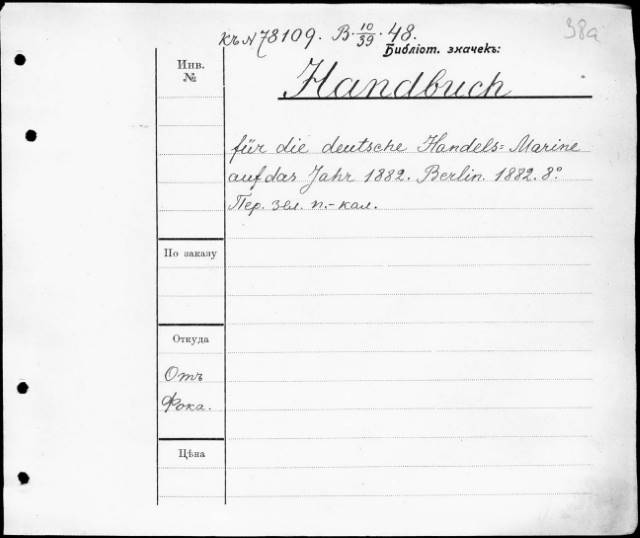 38а
Къ № 78109. В. 10/39 . 48.
Библіот. значекъ:
Инв.
№
Handbuch
für die deutsche Handels=Marine
auf das Jahr 1882. Berlin. 1882. 8°
Пер. зел. п.-кал.
По заказу
Откуда
Отъ
Фока.
Цѣна